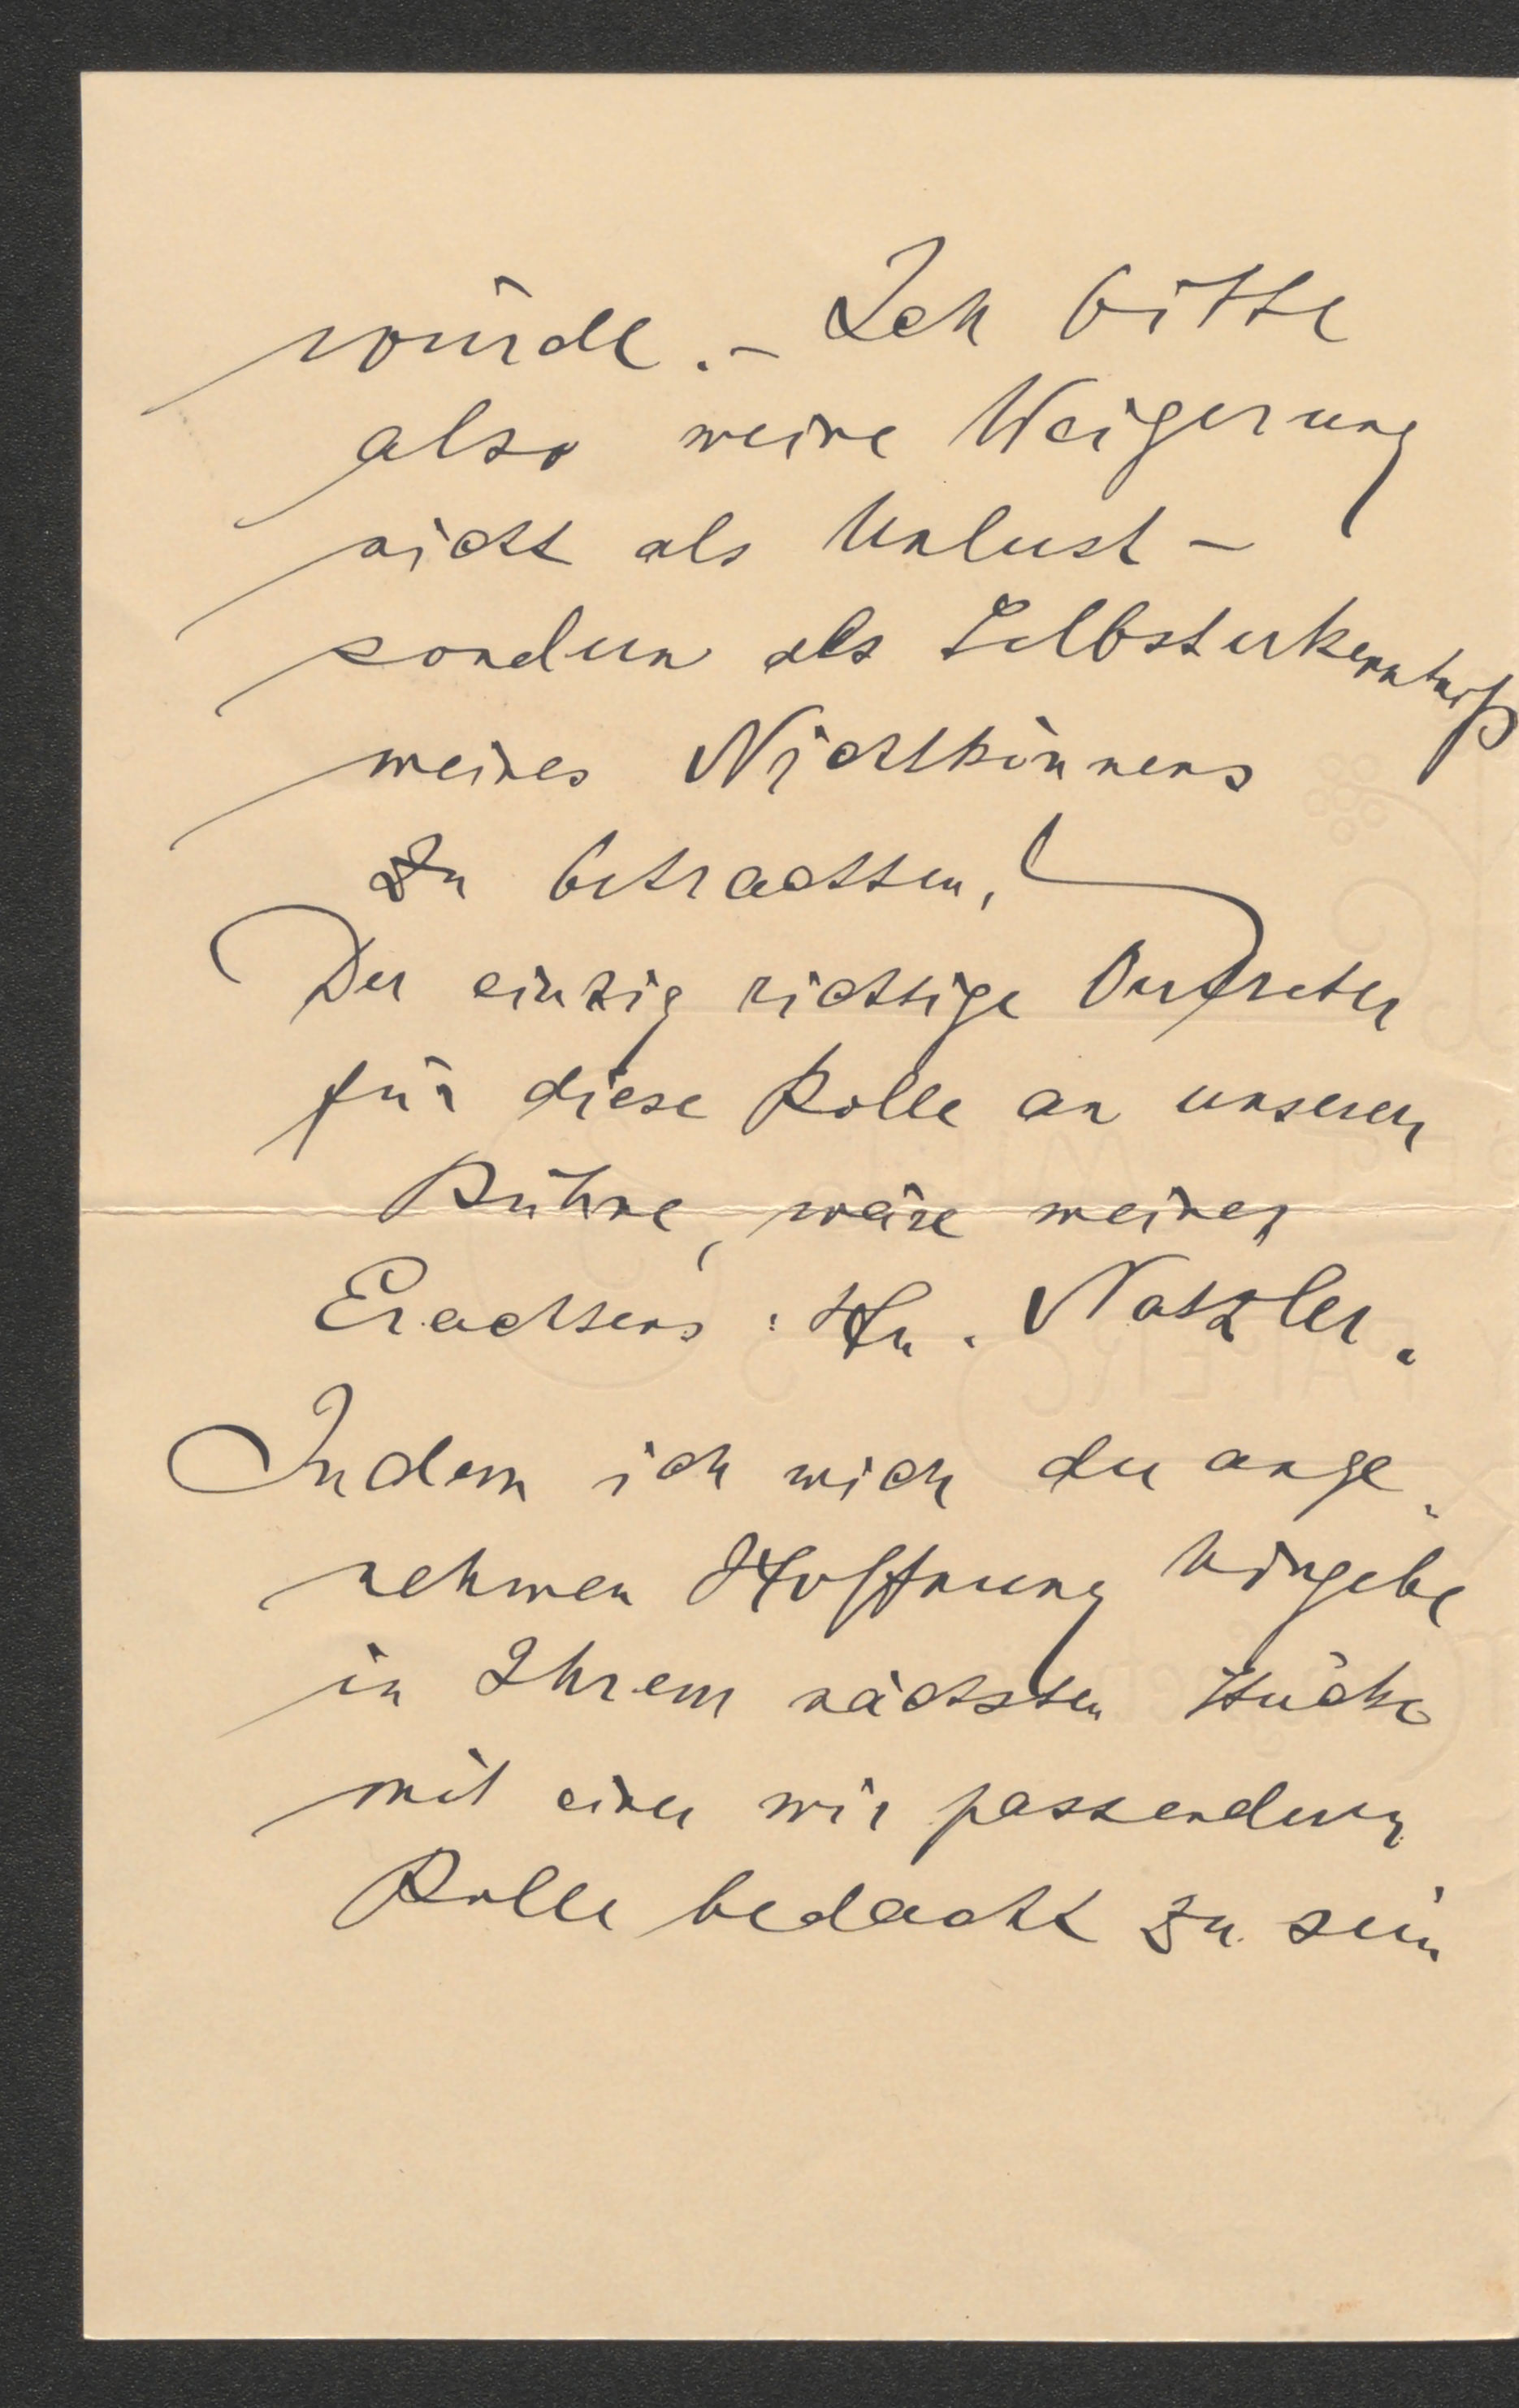 würde. – Ich bitte
also meine Weigerung
nicht als Unlust –
sondern als Selbsterkenntniß
meines Nichtkönnens
zu betrachten,
Der einzig richtige Vertreter
für diese Rolle an unserer
Bühne, wäre meines
Erachtens: Hr. Natzler.
Indem ich mich der ange-
nehmen Hoffnung hingebe
in Ihrem nächsten Stücke
mit einer mir passenderen
Rolle bedacht zu sein